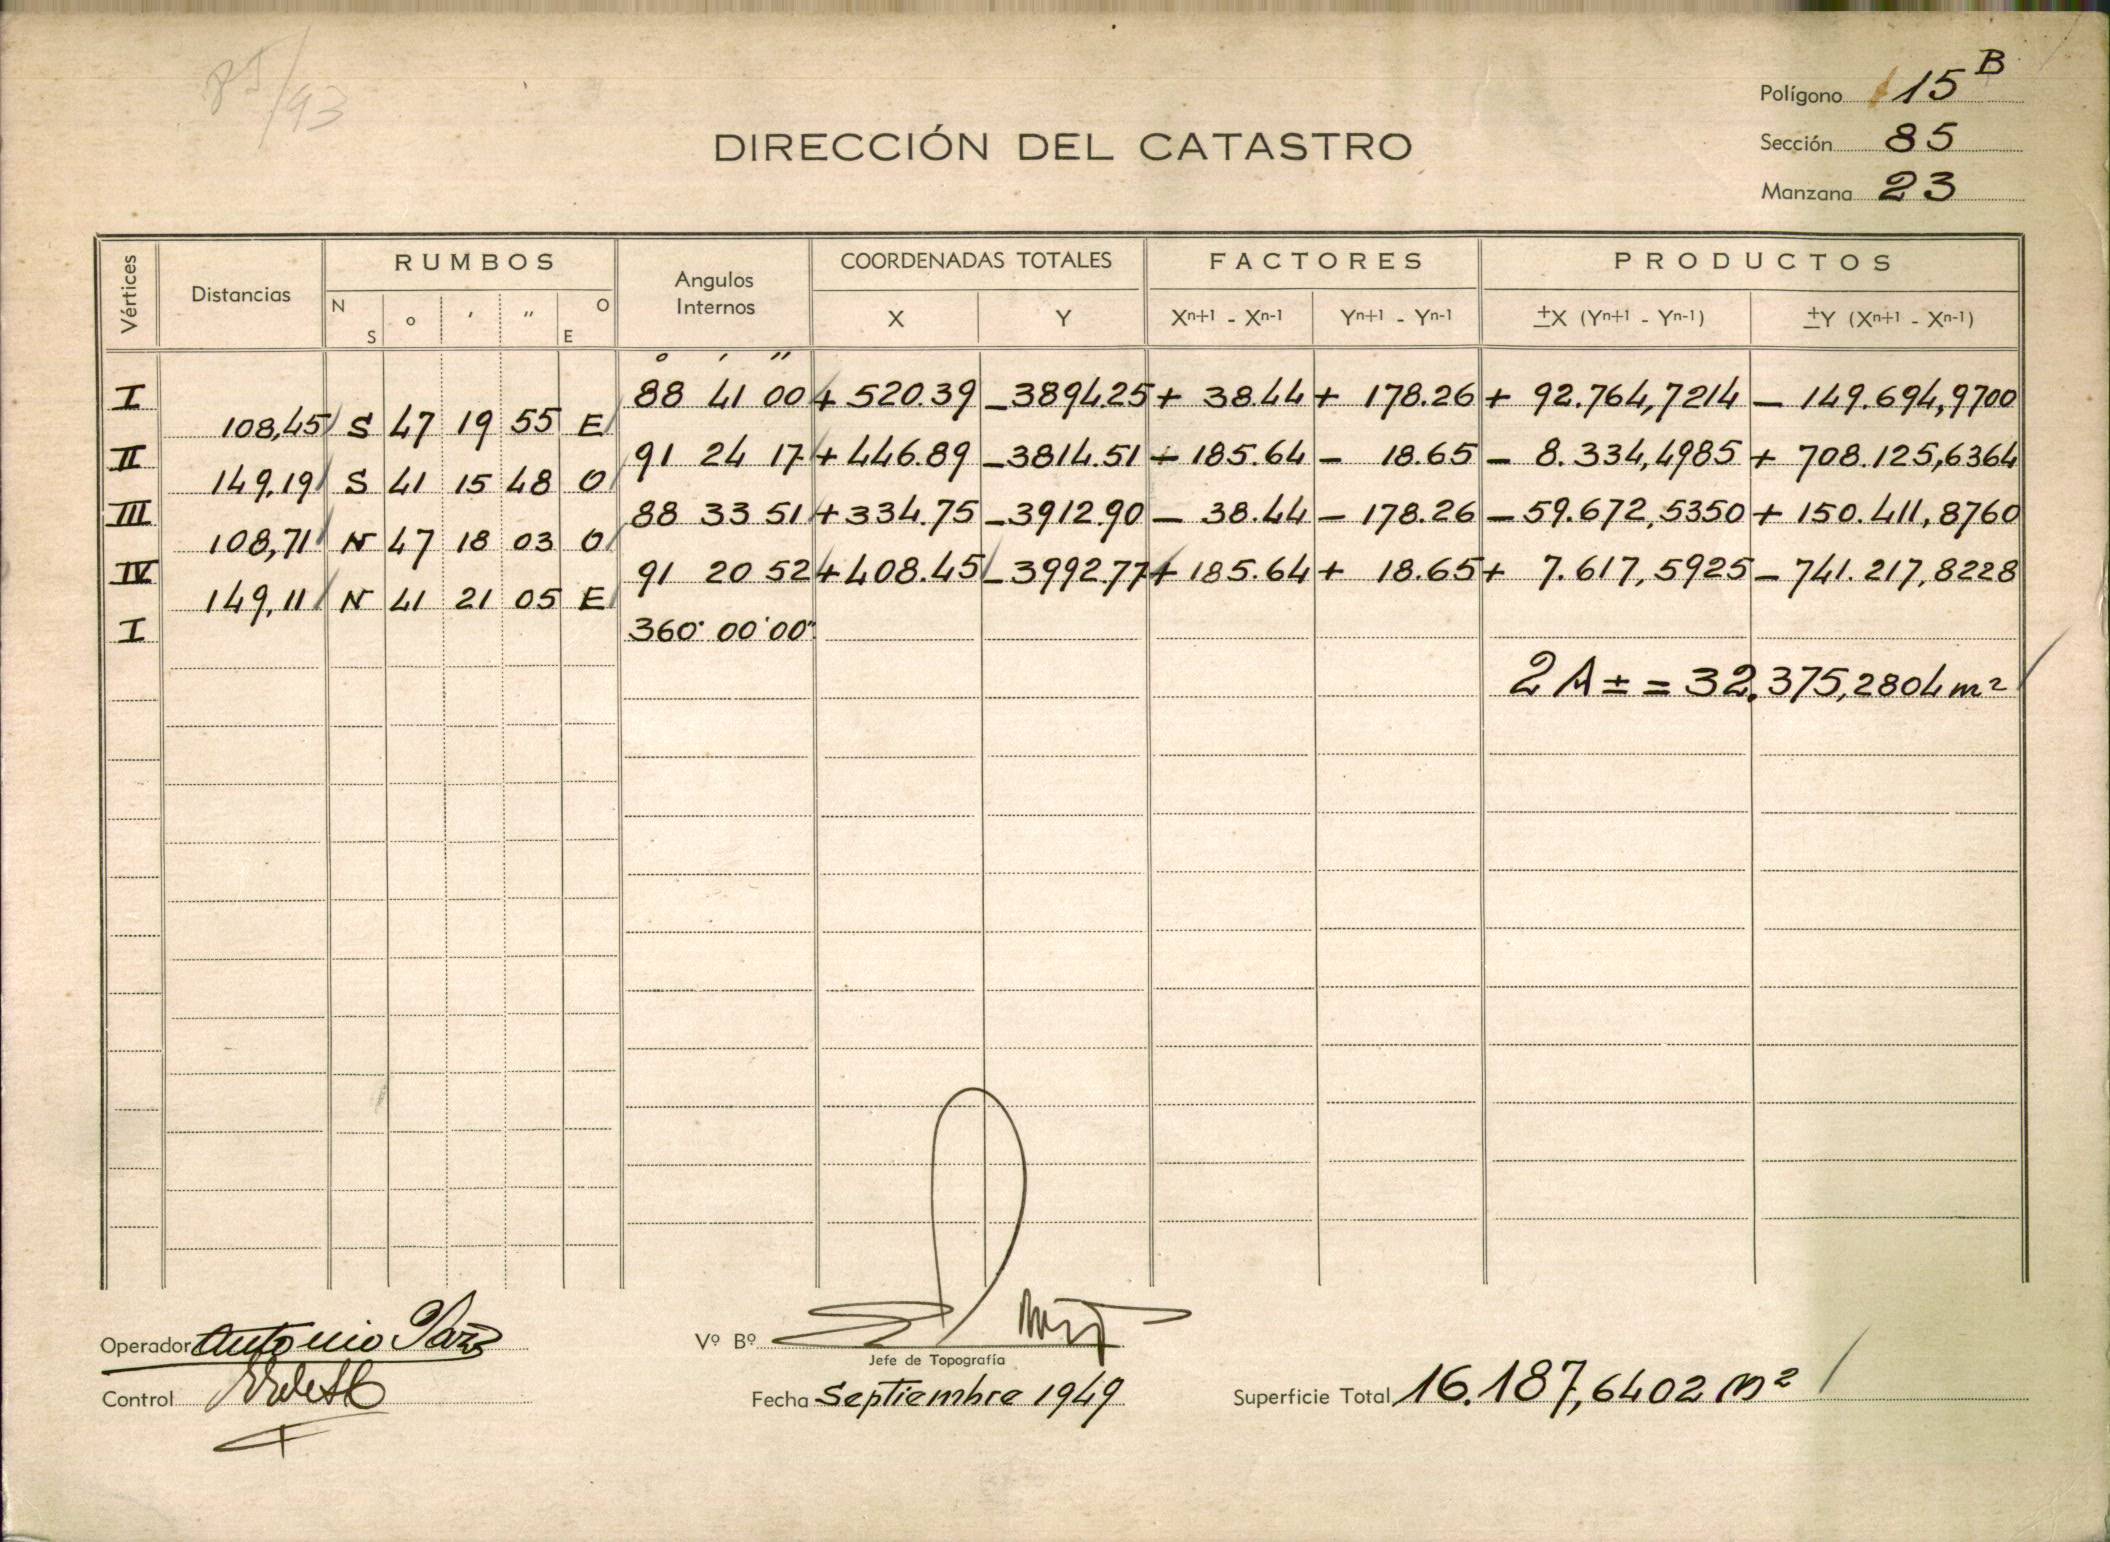 85/93
Polígono 15 B
DIRECCIÓN DEL CATASTRO
Sección 85
Manzana 23
Vértices Distancias RUMBOS Angulos Internos COORDENADAS TOTALES FACTORES PRODUCTOS
N S ° ' " O E X Y Xⁿ⁺¹ - Xⁿ⁻¹ Yⁿ⁺¹ - Yⁿ⁻¹ ±X (Yⁿ⁺¹ - Yⁿ⁻¹) ±Y (Xⁿ⁺¹ - Xⁿ⁻¹)
° ' "
I 88 41 00 + 520.39 - 3894.25 + 38.44 + 178.26 + 92.764,7214 - 149.694,9700
108,45 S 47 19 55 E
II 91 24 17 + 446.89 - 3814.51 - 185.64 - 18.65 - 8.334,4985 + 708.125,6364
149,19 S 41 15 48 O
III 88 33 51 + 334.75 - 3912.90 - 38.44 - 178.26 - 59.672,5350 + 150.411,8760
108,71 N 47 18 03 O
IV 91 20 52 + 408.45 - 3992.77 + 185.64 + 18.65 + 7.617,5925 - 741.217,8228
149,11 N 41 21 05 E
I 360° 00' 00"
2 A ± = 32.375,2804 m²
Operador Antonio
Vº Bº
Jefe de Topografía
Control
Fecha Septiembre 1949
Superficie Total 16.187,6402 m²